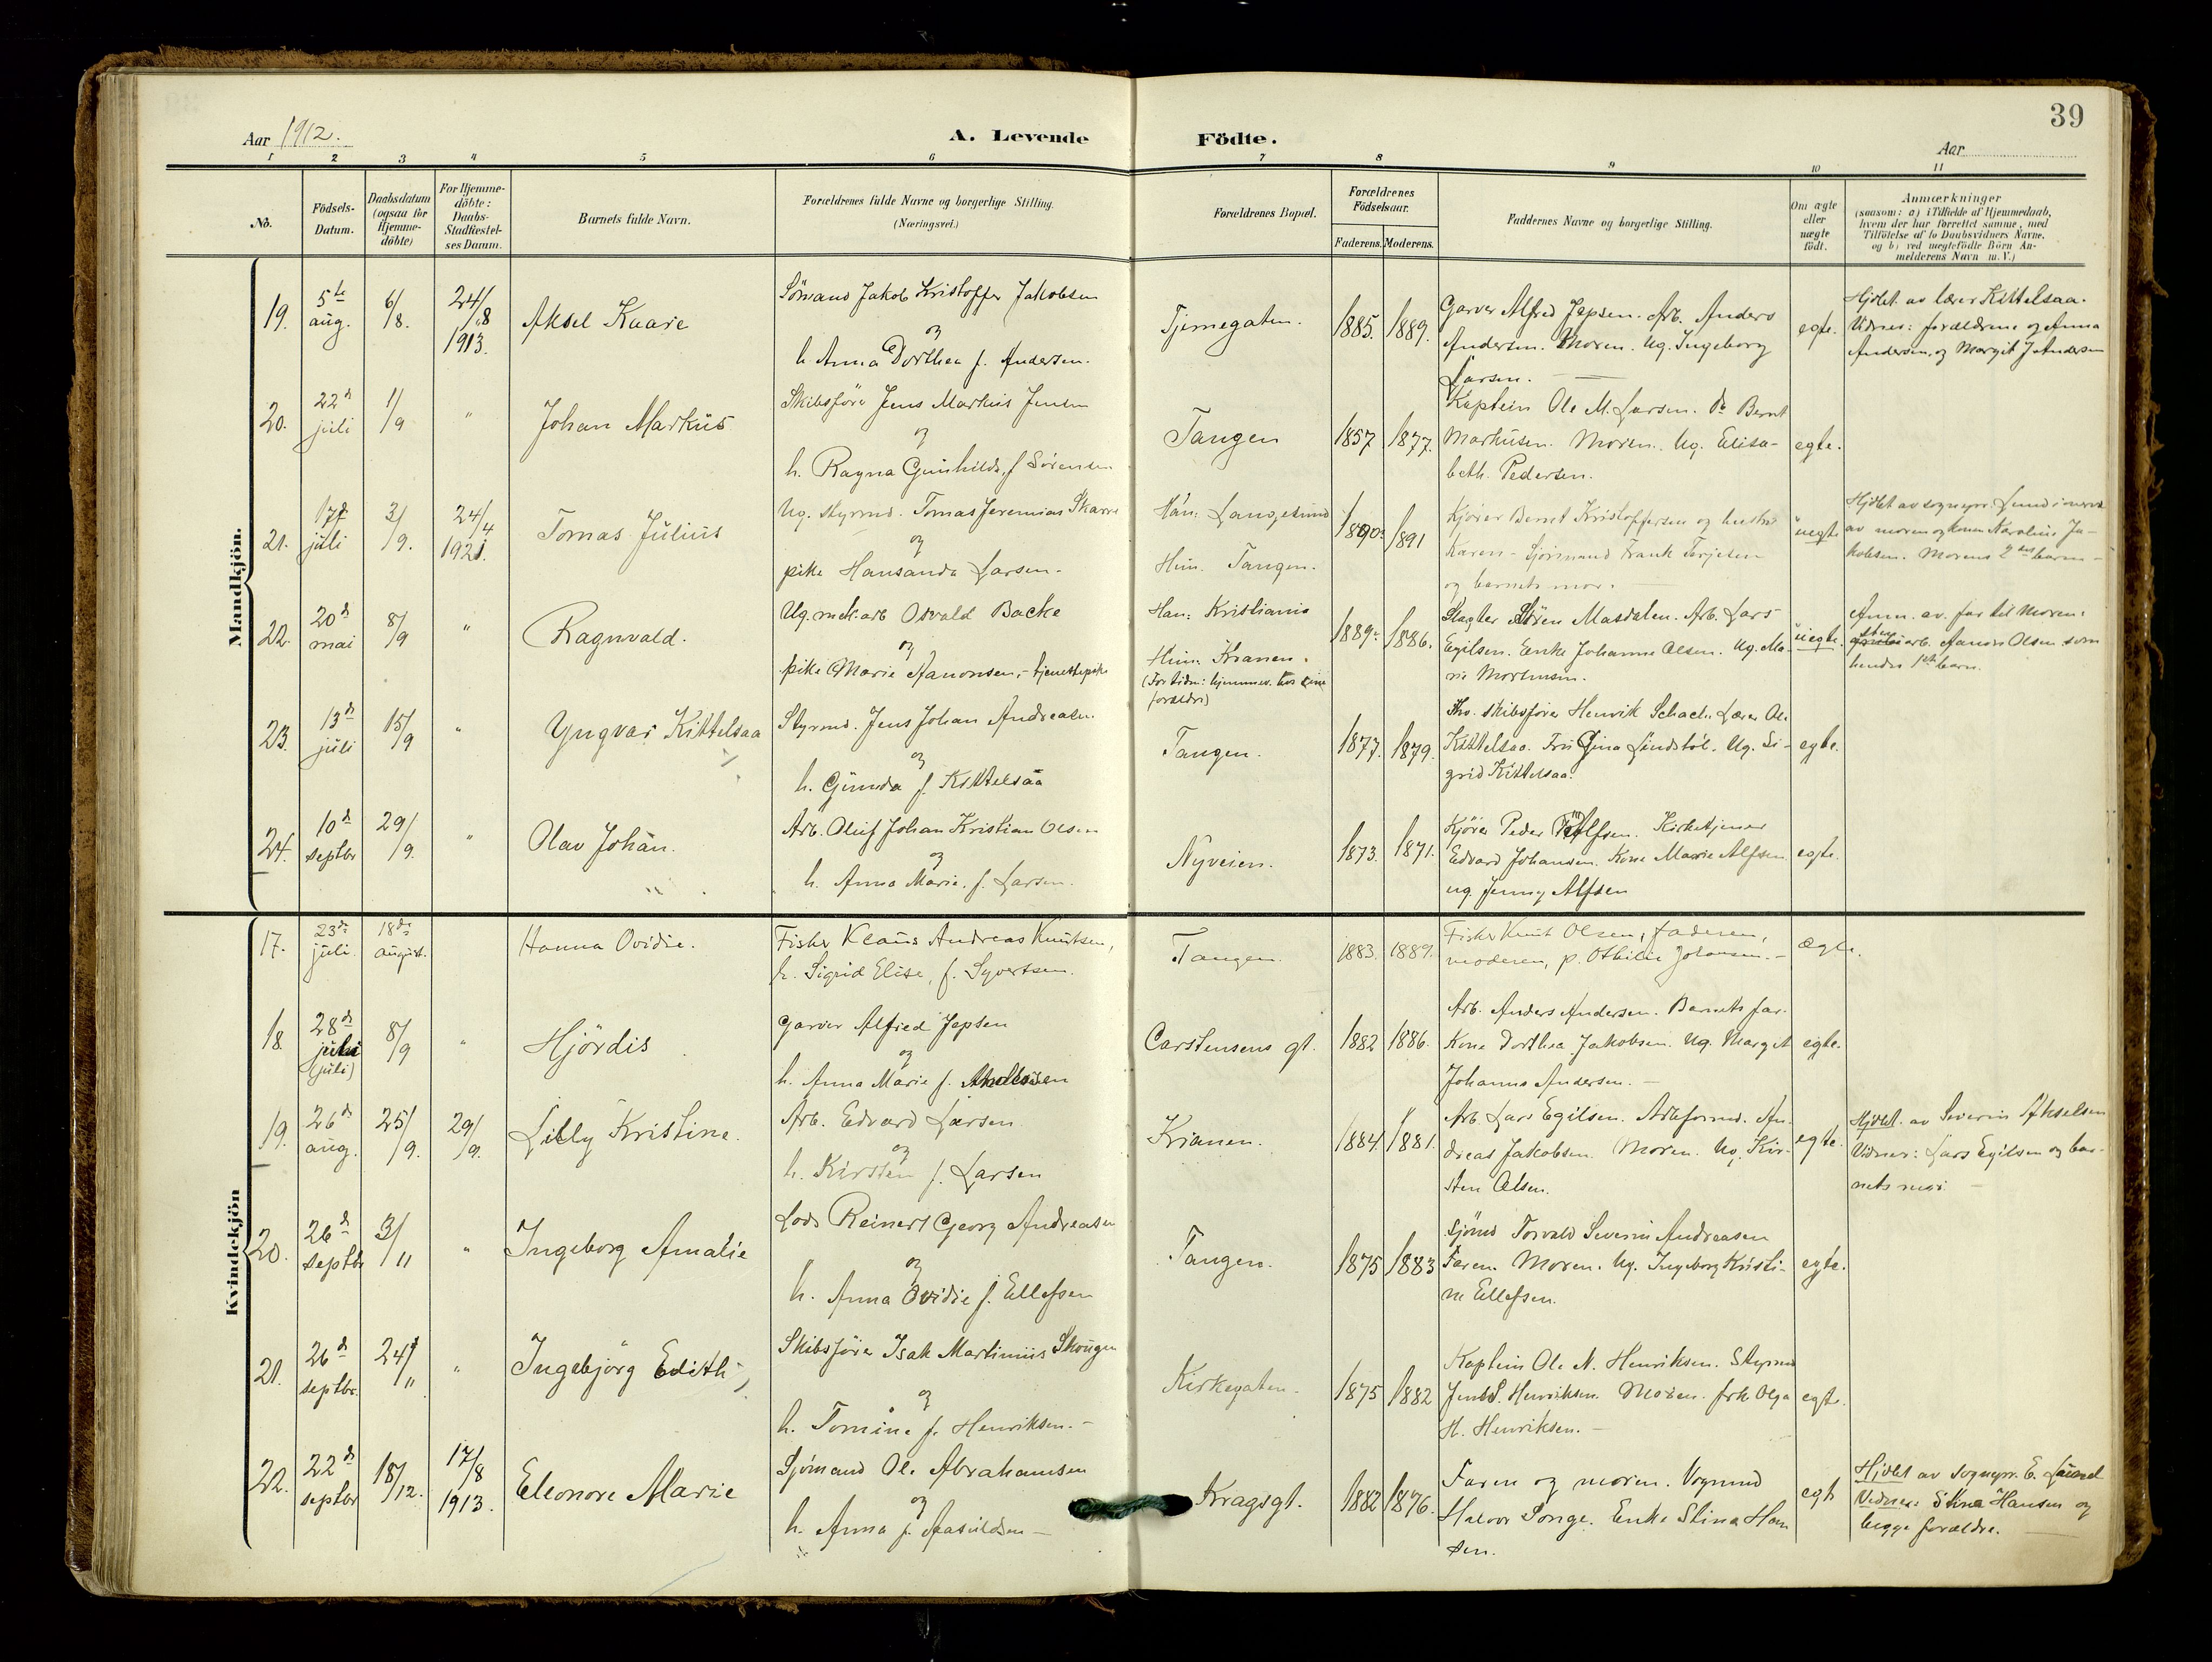 39
Aar 1912.
A. Levende Födte.
Aar
1 2 3 4 5 6 7 8 9 10 11
No.
Födsels-
Datum.
Daabsdatum
(ogsaa for
Hjemme-
döbte)
For Hjemme-
döbte:
Daabs-
Stadfæstel-
ses Datum.
Barnets fulde Navn.
Forældrenes fulde Navne og borgerlige Stilling.
(Næringsvei.)
Forældrenes Bopæl.
Forældrenes
Födselsaar.
Faderens. Moderens.
Faddernes Navne og borgerlige Stilling.
Om ægte
eller
uægte
födt.
Anmærkninger
(saasom: a) i Tilfælde af Hjemmedaab,
hvem der har forrettet samme, med
Tilföielse af to Daabsvidners Navne,
og b) ved uægtefödte Börn An-
melderens Navn m. V.)
Mandkjön.
19.
5te
aug.
6/8.
24/8
1913.
Aksel Kaare
Sömand Jakob Kristoffer Jakobsen
og
h. Anna Dorthea f. Andersen.
Tjernegaten.
1885. 1889.
Garver Alfred Jepsen. Arb. Anders
Andersen. Moren. Ug. Ingeborg
Larsen.
egte.
Hjdbt. av lærer Kittelsaa.
Vidner: forældrene og Anna
Andersen, og Margit J Andersen
20.
22d
juli
1/9
"
Johan Markus
Skibsförer Jens Markus Jensen
og
h. Ragna Gunhilda, f Sörensen
Tangen
1857 1877.
Kaptein Ole M. Larsen. Do Bernt
Markusen. Moren. Ug. Elisa-
beth Pedersen.
egte.
21.
17d
juli
3/9.
24/4
1921.
Tomas Julius
Ug. styrmd. Tomas Jeremias
og
pike Hansanda Larsen.
Han: Langesund
Hun: Tangen.
1890. 1891
Kjörer Bernt Kristoffersen og hustru
Karen - Sjömand Frank Terjesen
og barnets mor.
uegte
Hjdbt av sognepr. Lund i nærv.
av moren og konen Karoline Ja-
kobsen. Morens 2det barn -
22.
20d
mai
8/9
"
Ragnvald.
Ug. mek. arb Osvald Backe
og
pike Marie Aanonsen, - tjenestepike
Han: Kristiania
Hun: Kranen.
(For tiden: hjemmev. hos sine
forældre)
1889. 1886.
Slagter Sören Masdalen. Arb. Lars
Egilsen. Enke Johanne Olsen. Ug. Ma-
rie Mortensen.
uegte.
Anm. av far til moren:
arb. Aanon Olsen som
hendes 1ste barn.
23.
13d
juli
15/9
"
Yngvar Kittelsaa
Styrmd. Jens Johan Andreasen.
og
h. Gunda f. Kittelsaa
Tangen.
1877. 1879.
Fhv. skibsförer Henrik Schach. Lærer Ole
Kittelsaa. Fru Gina Lindstöl. Ug. Si-
grid Kittelsaa.
egte.
24.
10d
septbr
29/9.
"
Olav Johan.
Arb. Oluf Johan Kristian Olsen
og
h. Anna Marie. f. Larsen.
Nyveien.
1873. 1871.
Kjörer Peder Alfsen. Kirketjener
Edvard Johansen. Kone Marie Alfsen
ug. Jenny Alfsen
egte.
Kvindekjön
17.
23de
juli.
18de
august.
Hanna Ovidie.
Fisker Klaus Andreas Knutsen,
h. Sigrid Elise, f. Syvertsen.
Tangen.
1883. 1889.
Fisker Knut Olsen, faderen,
moderen, p. Othilie Johansen.-
ægte.
18.
28de
juli
(juli)
8/9
"
Hjördis
Garver Alfred Jepsen
og
h. Anna Marie f. Andersen
Carstensens gt.
1882 1886.
Arb. Anders Andersen. Barnets far.
Kone Dorthea Jakobsen. Ug. Margit
Johanne Andersen.
egte.
19.
26de
aug.
25/9.
29/9.
Lilly Kristine.
Arb. Edvard Larsen
og
h. Kirsten f. Larsen
Kranen.
1884. 1881.
Arb. Lars Egilsen. Arbformd. An-
dreas Jakobsen. Moren. Ug. Kir-
sten Olsen.
egte.
Hjdbt. av Severin Akselsen
Vidner: Lars Egilsen og bar-
nets mor.
20.
26d
septbr
3/11
"
Ingeborg Amalie
Lods Reinert Georg Andreasen
og
h. Anna Ovidie f. Ellefsen
Tangen.
1875 1883
Sjömd Torvald Severin Andreasen
Faren. Moren. Ug. Ingeborg Kristi-
ne Ellefsen.
egte.
21.
26d
septbr.
24/11
"
Ingebjörg Edith
Skibsförer Isak Martinius Skougen
og
h. Tomine f. Henriksen.-
Kirkegaten.
1875 1882
Kaptein Ole N. Henriksen. Styrmd
Jens S. Henriksen. Moren. frk Olga
H. Henriksen.-
egte.
22.
22d
septbr
18/12.
17/8
1913.
Eleonore Marie
Sjömand Ole Abrahamsen
og
h. Anna f. Aasulvsen
Kragsgt.
1882 1876.
Faren og moren. Vognmd
Halvor Songe. Enke Stina Han
sen.
egte
Hjdbt av sognepr. E. Lund
Vidner: Stina Hansen og
begge forældre.